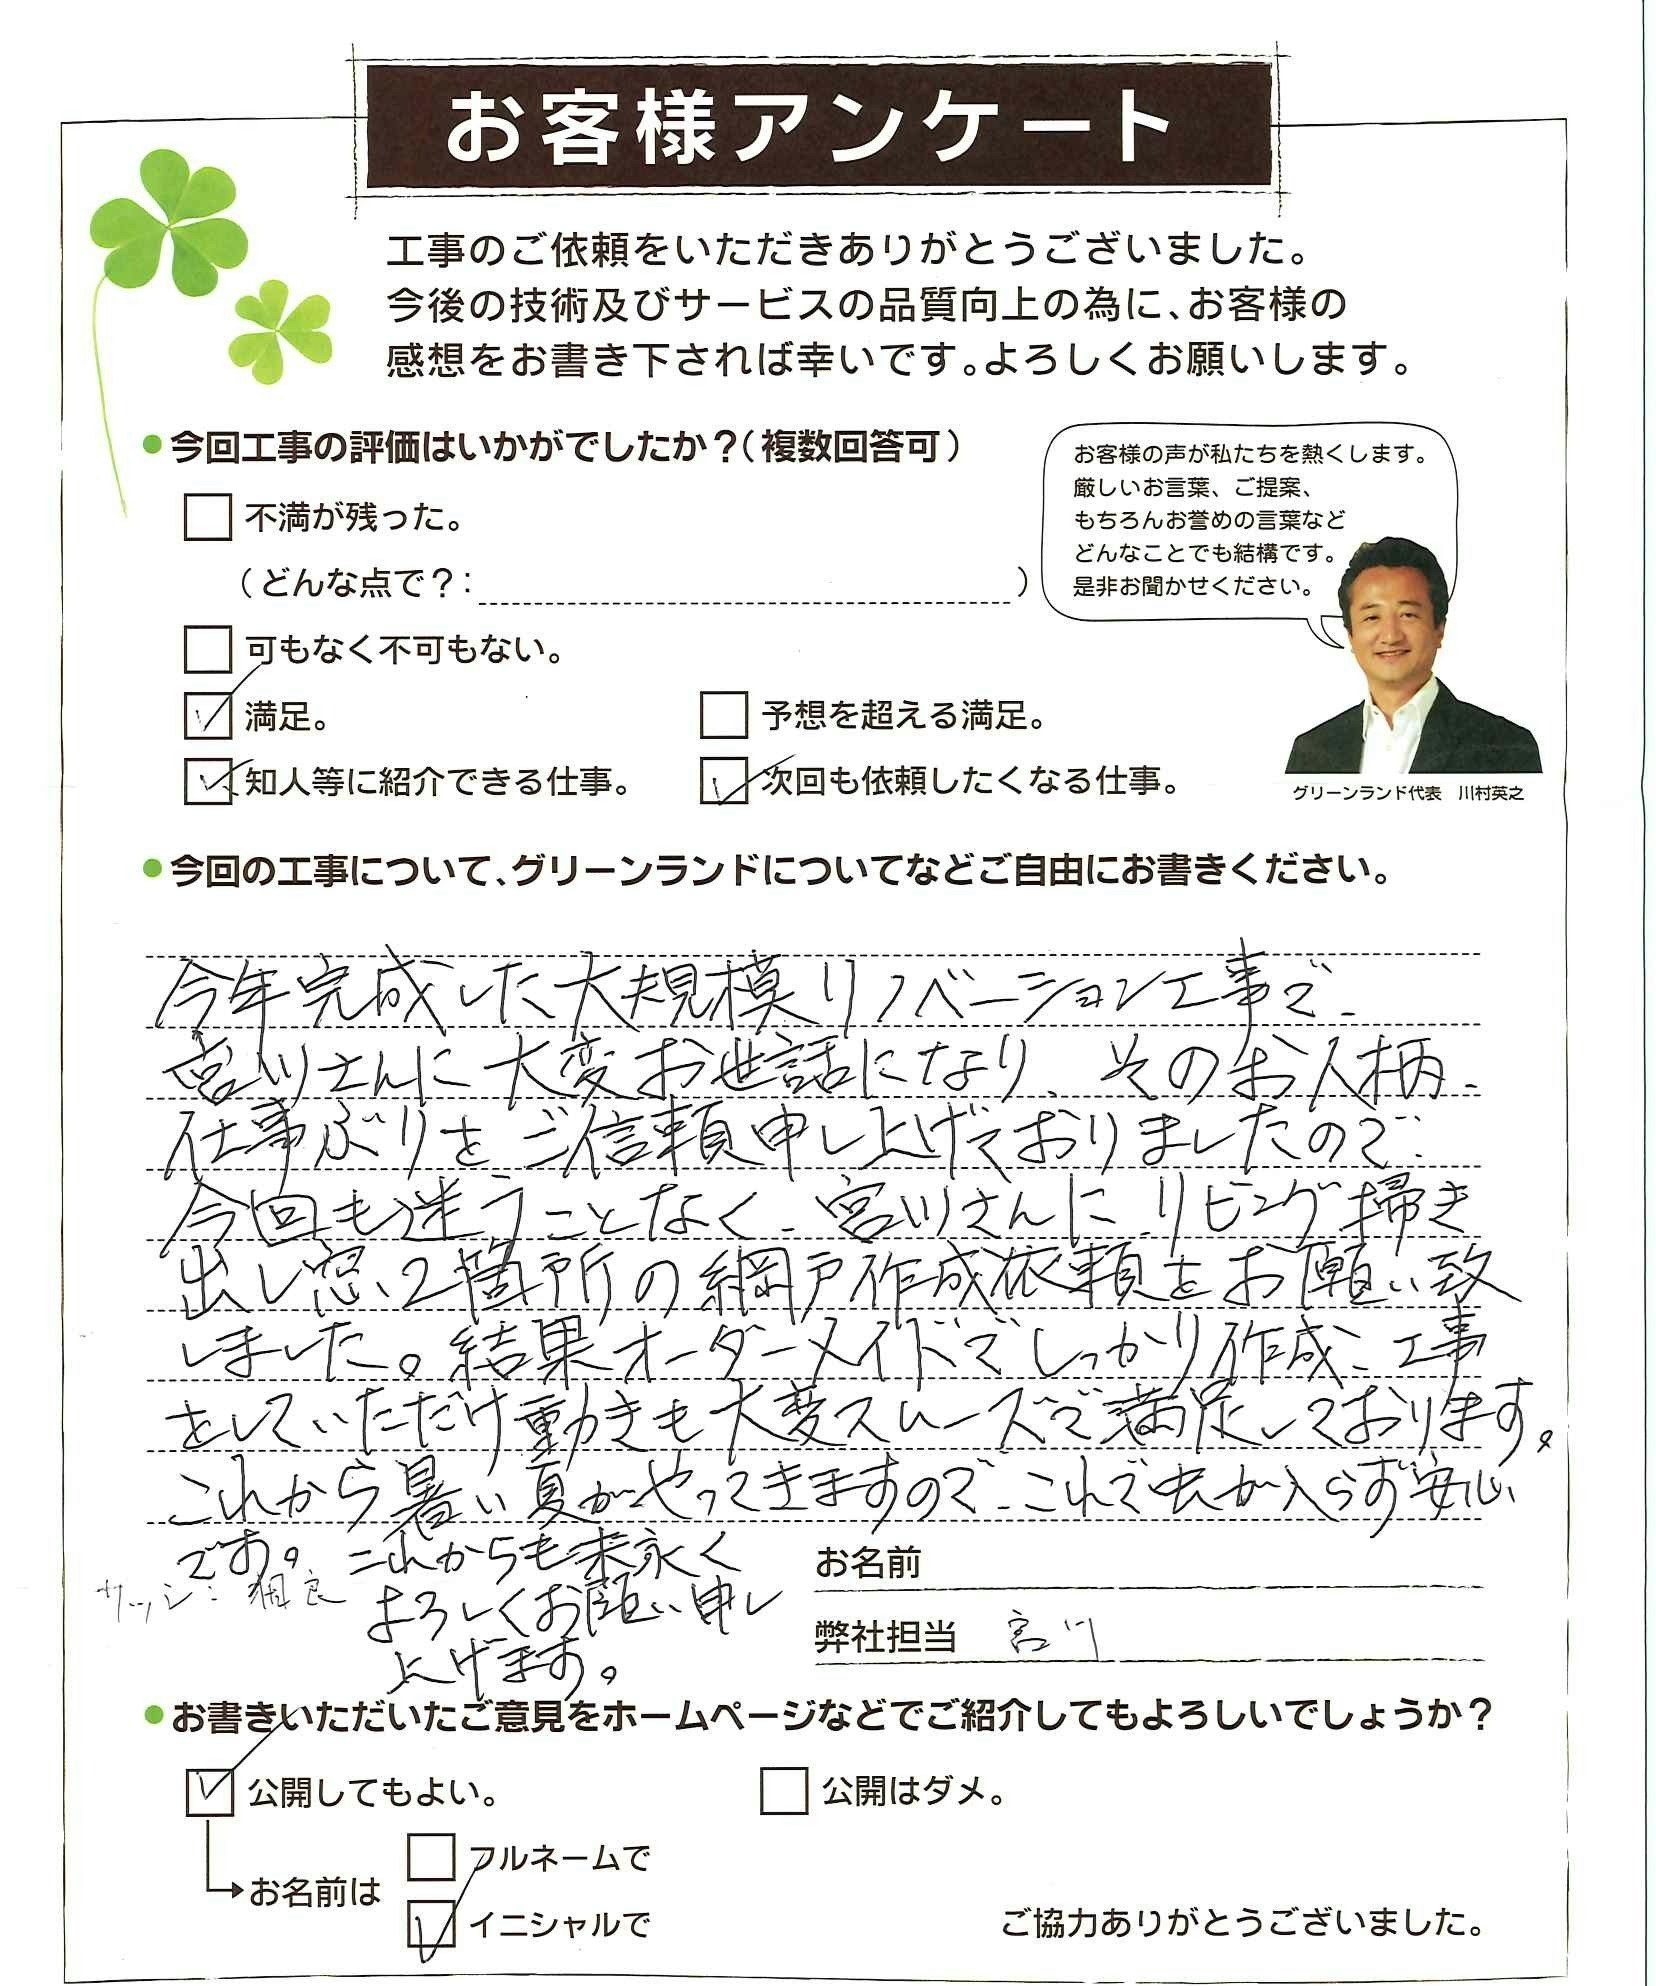 お客様アンケート
工事のご依頼をいただきありがとうございました。
今後の技術及びサービスの品質向上の為に、お客様の
感想をお書き下されば幸いです。よろしくお願いします。
●今回工事の評価はいかがでしたか？（複数回答可）
不満が残った。
（どんな点で？：　）
可もなく不可もない。
満足。
予想を超える満足。
知人等に紹介できる仕事。
次回も依頼したくなる仕事。
お客様の声が私たちを熱くします。
厳しいお言葉、ご提案、
もちろんお誉めの言葉など
どんなことでも結構です。
是非お聞かせください。
グリーンランド代表　川村英之
●今回の工事について、グリーンランドについてなどご自由にお書きください。
今年完成した大規模リノベーション工事で、
宮川さんに大変お世話になり、そのお人柄、
仕事ぶりをご信頼申し上げておりましたので、
今回も迷うことなく、宮川さんに、リビング掃き
出し窓、2箇所の網戸作成依頼をお願い致
しました。結果オーダーメイドでしっかり作成、工事
をしていただけ動きも大変スムーズで満足しております。
これから暑い夏がやってきますので、これで虫が入らず安心
です。これからも末永く
よろしくお願い申し
上げます。
サッシ：
お名前
弊社担当　宮川
●お書きいただいたご意見をホームページなどでご紹介してもよろしいでしょうか？
公開してもよい。
公開はダメ。
お名前は
フルネームで
イニシャルで
ご協力ありがとうございました。